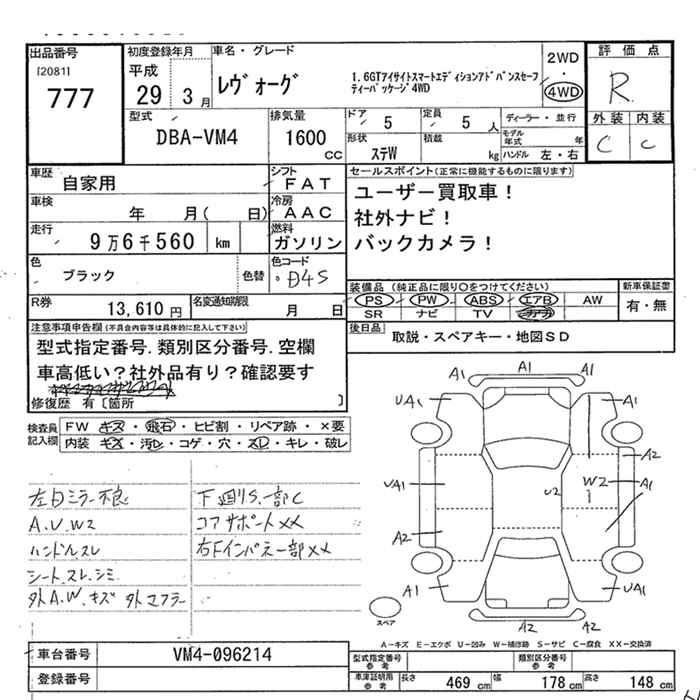 出品番号
[2081]
777
初度登録年月
平成
29 3月
車名・グレード
レヴォーグ
1.6GTアイサイトスマートエディションアドバンスセーフ
ティーパッケージ4WD
2WD
・
4WD
評価点
R
外装 内装
C C
型式
DBA-VM4
排気量
1600
cc
ドア
5
定員
5 人
ディーラー・並行
形状
ステW
積載
kg
モデル年式 年
ハンドル 左・右
車歴
自家用
シフト
FAT
車検
年 月( 日)
冷房
AAC
走行
9万6千560 km
燃料
ガソリン
色
ブラック
色替
色コード
D4S
R券
13,610 円
名変通知期限
月 日
セールスポイント(正常に機能するものに限ります)
ユーザー買取車!
社外ナビ!
バックカメラ!
装備品(純正品に限り○をつけてください)
PS PW ABS エアB AW
SR ナビ TV
新車保証書
有・無
後日品
取説・スペアキー・地図SD
注意事項申告欄(不具合内容等は具体的に記入して下さい)
型式指定番号.類別区分番号.空欄
車高低い?社外品有り?確認要す
修復歴 有〔箇所 〕
検査員
記入欄
FW キズ・飛石・ヒビ割・リペア跡・×要
内装 キズ・汚レ・コゲ・穴・スレ・キレ・破レ
左Bミラー不良
A.U.W2
ハンドルスレ
シート.スレ.シミ
外A.W.キズ 外マフラー
下廻りS.一部C
コアサポートXX
右Fインパネ一部XX
A1 A1 A1
UA1 A1
A2
UA1 U2 W2 A1
A2
A1 UA1
A2 A2
スペア
A-キズ E-エクボ U-凹み W-補修跡 S-サビ C-腐食 XX-交換済
車台番号
VM4-096214
登録番号
型式指定番号
参考
類別区分番号
参考
車庫証明用
参考
長さ 469 cm 幅 178 cm 高さ 148 cm